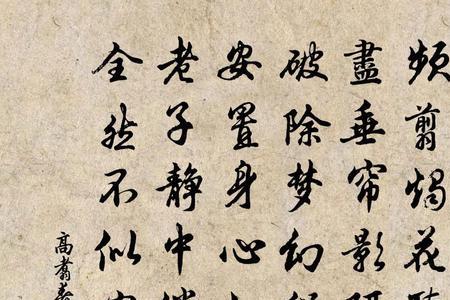 频翦燭花
盡垂帘影
破除梦幻
安置身心
老子静中
全然不似
高翥春